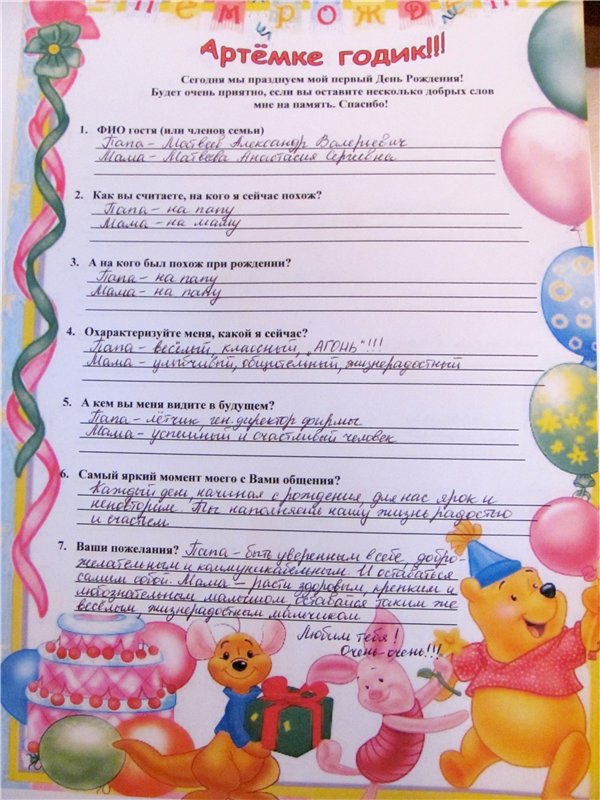 ЕМ РОЖДЕН
Артёмке годик!!!
Сегодня мы празднуем мой первый День Рождения!
Будет очень приятно, если вы оставите несколько добрых слов
мне на память. Спасибо!
1. ФИО гостя (или членов семьи)
Папа - Матвеев Александр Валерьевич
Мама - Матвеева Анастасия Сергеевна
2. Как вы считаете, на кого я сейчас похож?
Папа - на папу
Мама - на маму
3. А на кого был похож при рождении?
Папа - на папу
Мама - на папу
4. Охарактеризуйте меня, какой я сейчас?
Папа - весёлый, классный, „АГОНЬ"!!!
Мама - улыбчивый, общительный, жизнерадостный
5. А кем вы меня видите в будущем?
Папа - лётчик, ген. директор фирмы
Мама - успешный и счастливый человек
6. Самый яркий момент моего с Вами общения?
Каждый день, начиная с рождения для нас ярок и
неповторим. Ты наполняешь нашу жизнь радостью
и счастьем
7. Ваши пожелания? Папа - быть уверенным в себе, добро-
желательным и коммуникабельным. И оставаться
самим собой. Мама - расти здоровым, крепким и
любознательным малышом. Оставайся таким же
весёлым жизнерадостным мальчиком
Любим тебя!
Очень-очень!!!